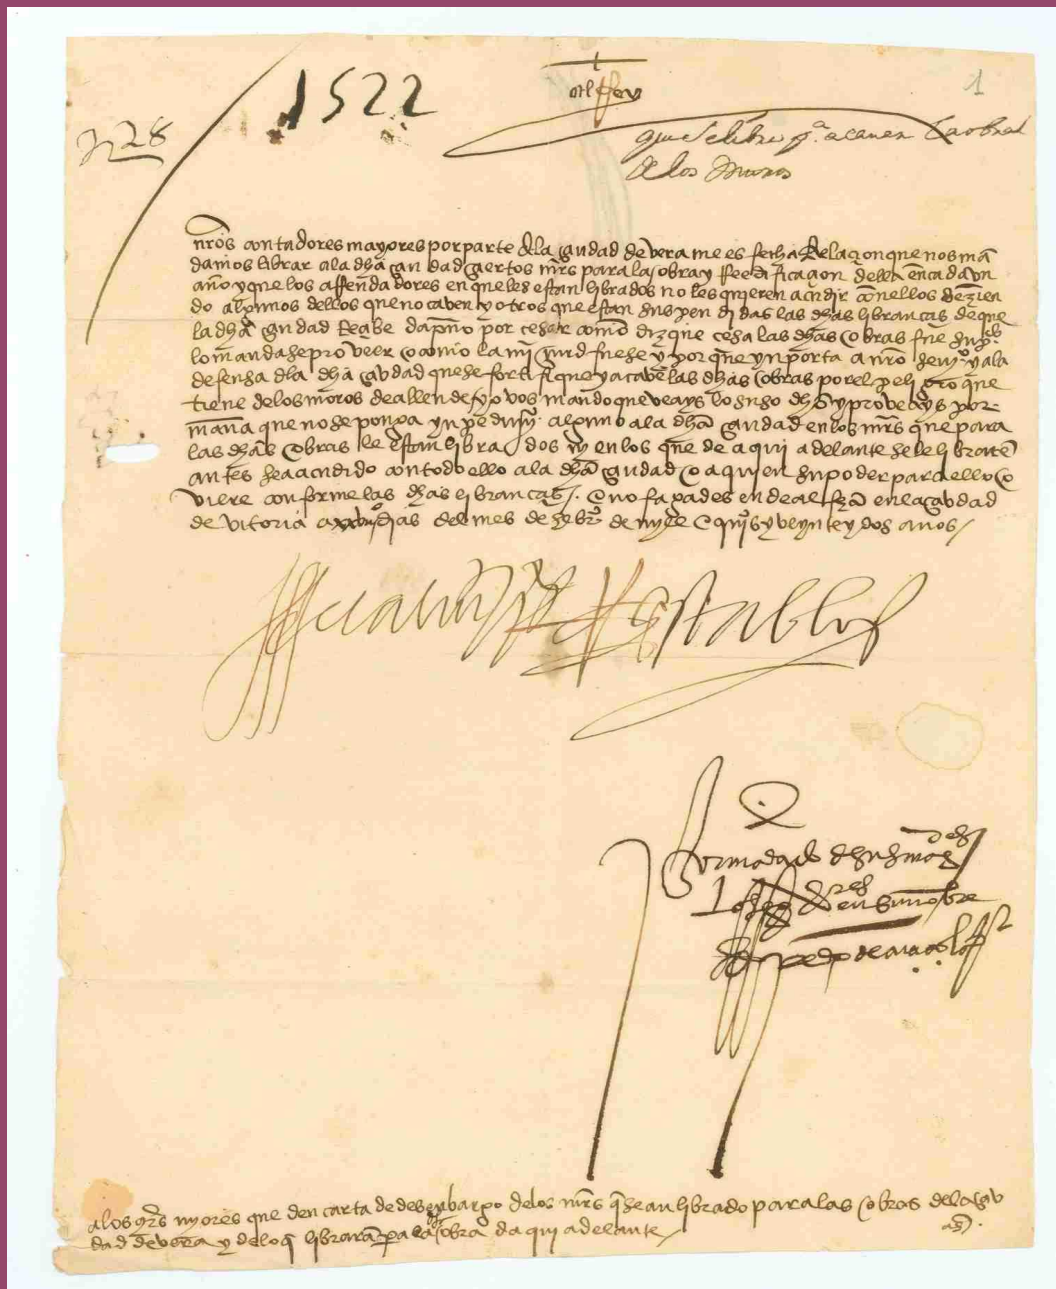 1522
1
el Rey
N 28
que se libre pª acauar la obra
de los Muros
nr̃os contadores mayores por parte dela çiudad de vera me es fecha Relaçion que nos mã
damos librar ala dha çiudad çiertos mr̃s para las obras y Reedificaçion della en cada vn
año y que los aRendadores en que les estan librados no les quieren acudir cõ nellos dezien
do algunos dellos que no caven y otros que estan suspendidas las dhas librancas de que
la dhã çiudad Reçibe dapño por çesar como dizque çesa las dhas obras fue supcº
lo mandase proveer o como la mi mrd fuese y por que ynporta a nr̃o serviº y ala
defensa dla dhã çiudad que se fortifique y acaven las dhas obras por el peligro que
tiene delos moros de allende yo vos mando que veays lo suso dhõ y proveays por
manã que no se ponga ynpedimyº alguno ala dhã çiudad en los mr̃s que para
las dhãs obras le estan librados y en los que de aqui adelante se le libraren
antes sea acudido con todo ello ala dhã çiudad o a quien su poder para ello o
viere conforme las dhãs librancas /. e no fagades en de al fhã en la çiudad
de vitoria a xxviijº dias del mes de hebrº de myll e quiºs y veynte y dos años /
Por mandado de sus magdes
los gores en su nonbre
pedro de
alos qr̃s myores que den carta de desenbargo delos mr̃s q̃ se an librado para las obras dela çiu
dad de vera y delo q̃ libraran pa la obra da qui adelante /